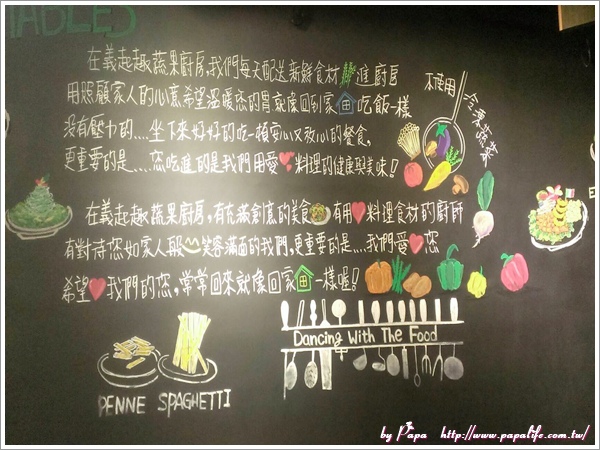 TABLES
在義起趣蔬果廚房,我們每天配送新鮮食材進廚房
用照顧家人的心意希望溫暖您的胃就像回到家吃飯一樣
沒有壓力的....坐下來好好的吃一頓安心又放心的餐食,
更重要的是....您吃進的是我們用愛料理的健康與美味!
不使用
冷凍蔬菜
在義起趣蔬果廚房,有充滿創意的美食有用料理食材的廚師
有對待您如家人般笑容滿面的我們,更重要的是...我們愛您
希望我們的您,常常回來就像回家一樣喔!
Dancing With The Food
PENNE SPAGHETTI
by Papa http://www.papalife.com.tw/